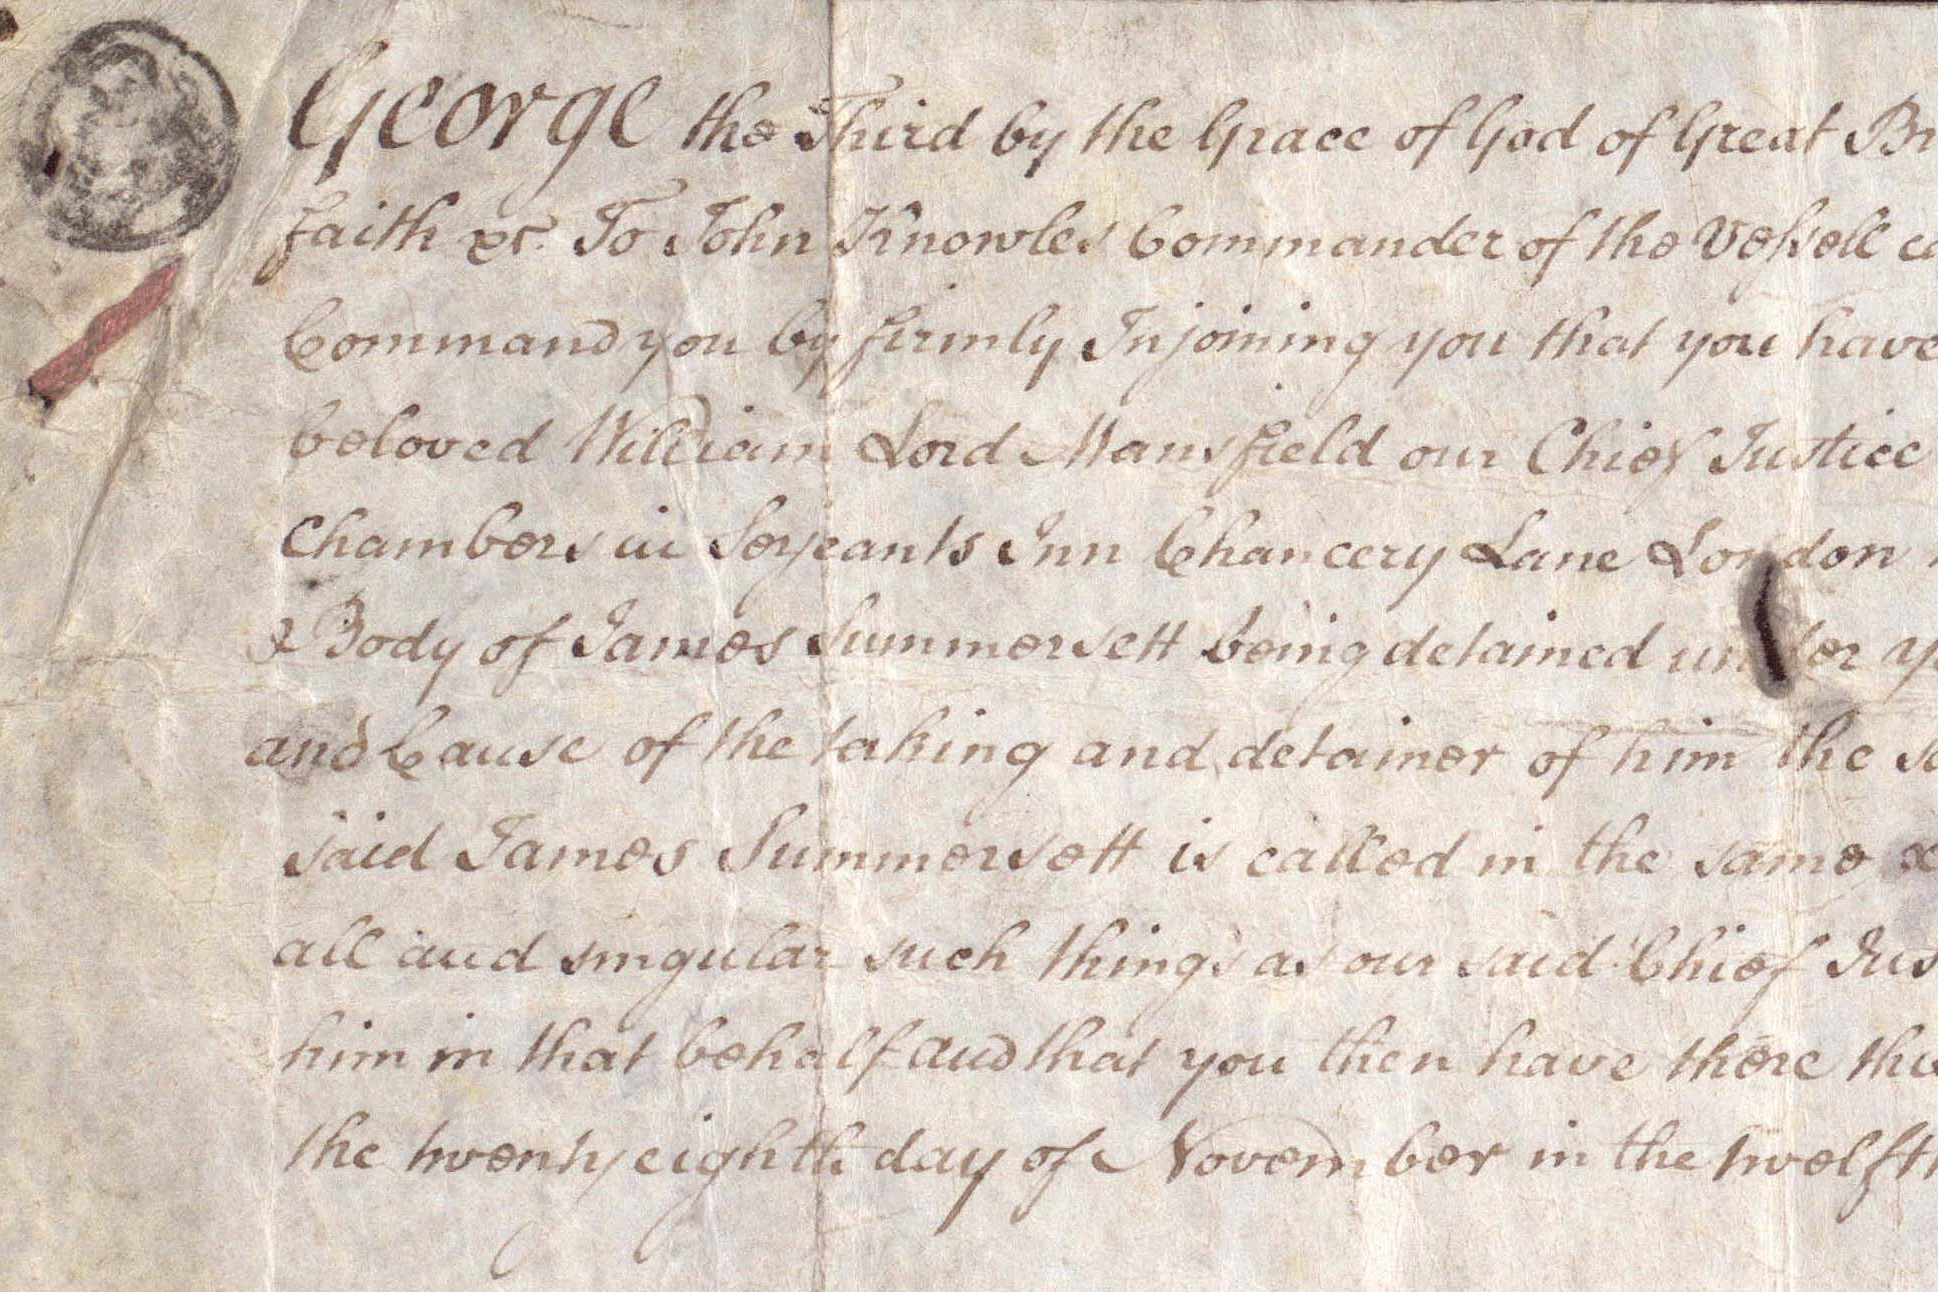 George the Third by the Grace of God of Great
faith &c. To John Knowles Commander of the Vessell
Command you by firmly Injoining you that you have
beloved William Lord Mansfield our Chief Justice
Chambers in Serjeants Inn Chancery Lane London
& Body of James Summersett being detained under
and Cause of the taking and detainer of him the
said James Summersett is called in the same
all and singular such things as our said Chief
him in that behalf and that you then have there
the twenty eighth day of November in the twelfth